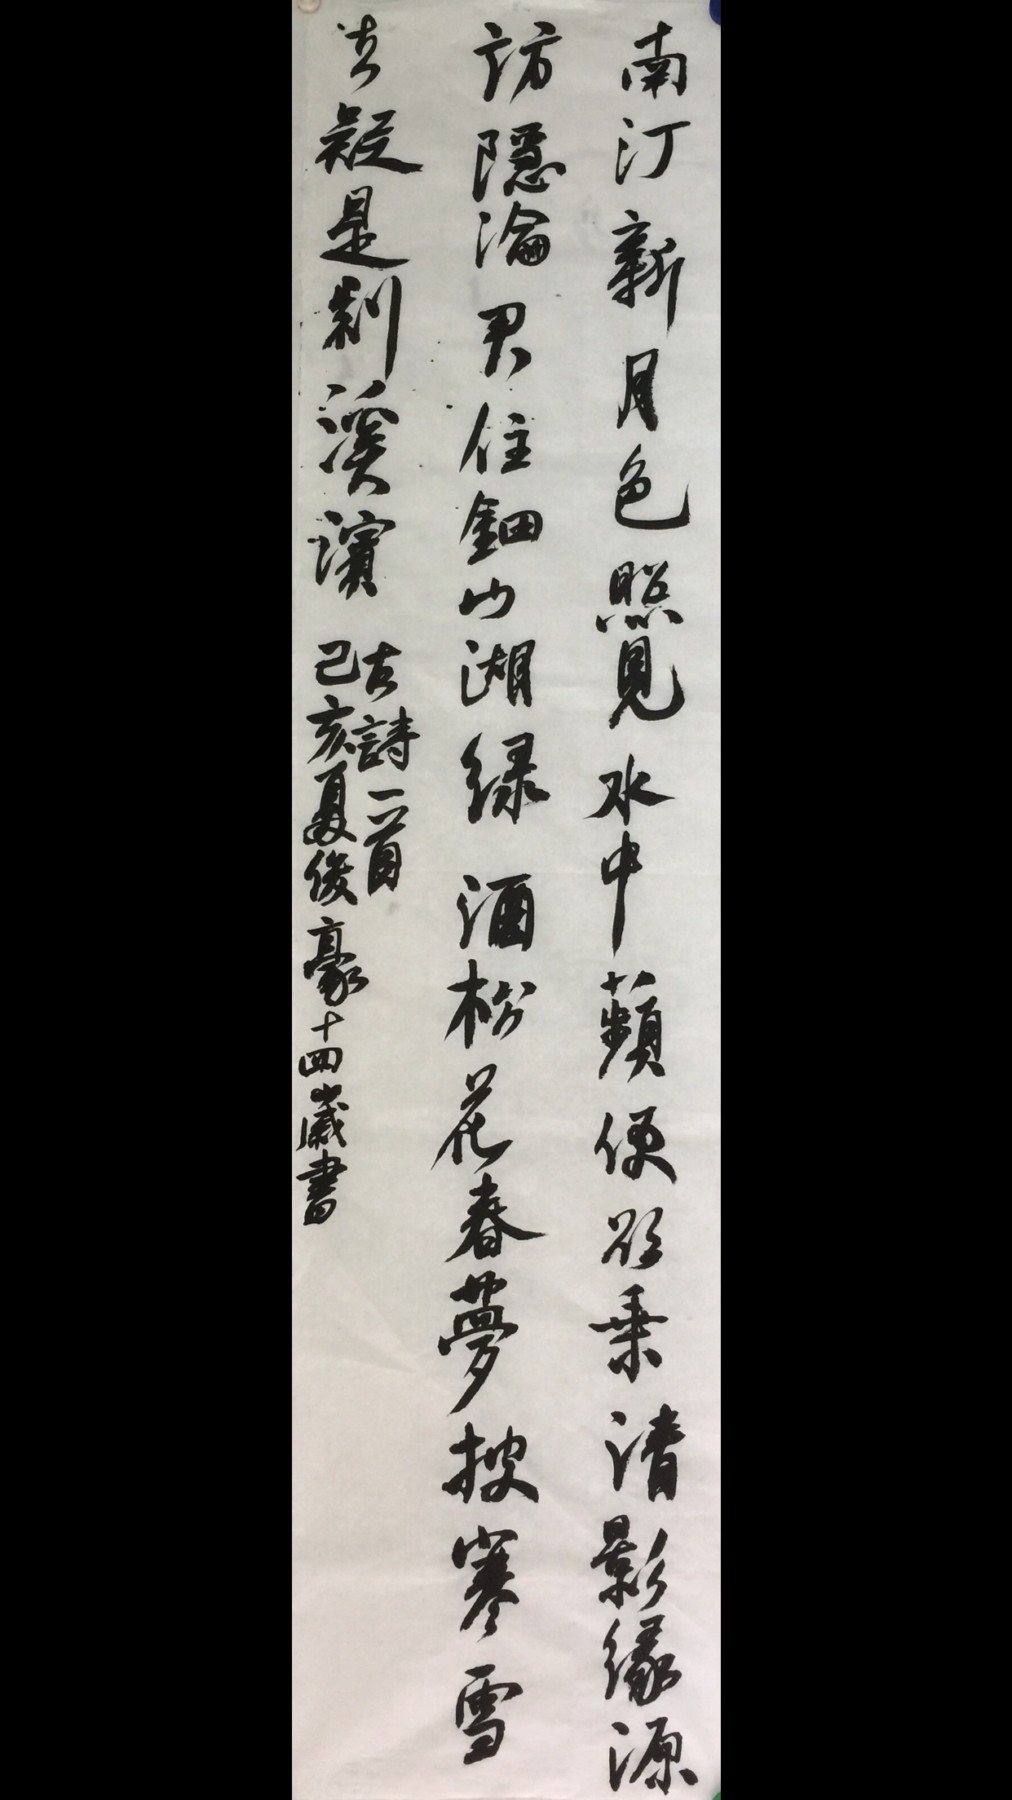 南汀新月色照見水中蘋便欲乘清影緣源
訪隱淪君住鈿山湖緑酒松花春夢披寒雪
去疑是剡溪濱
古詩一首
己亥夏俊豪十四歲書